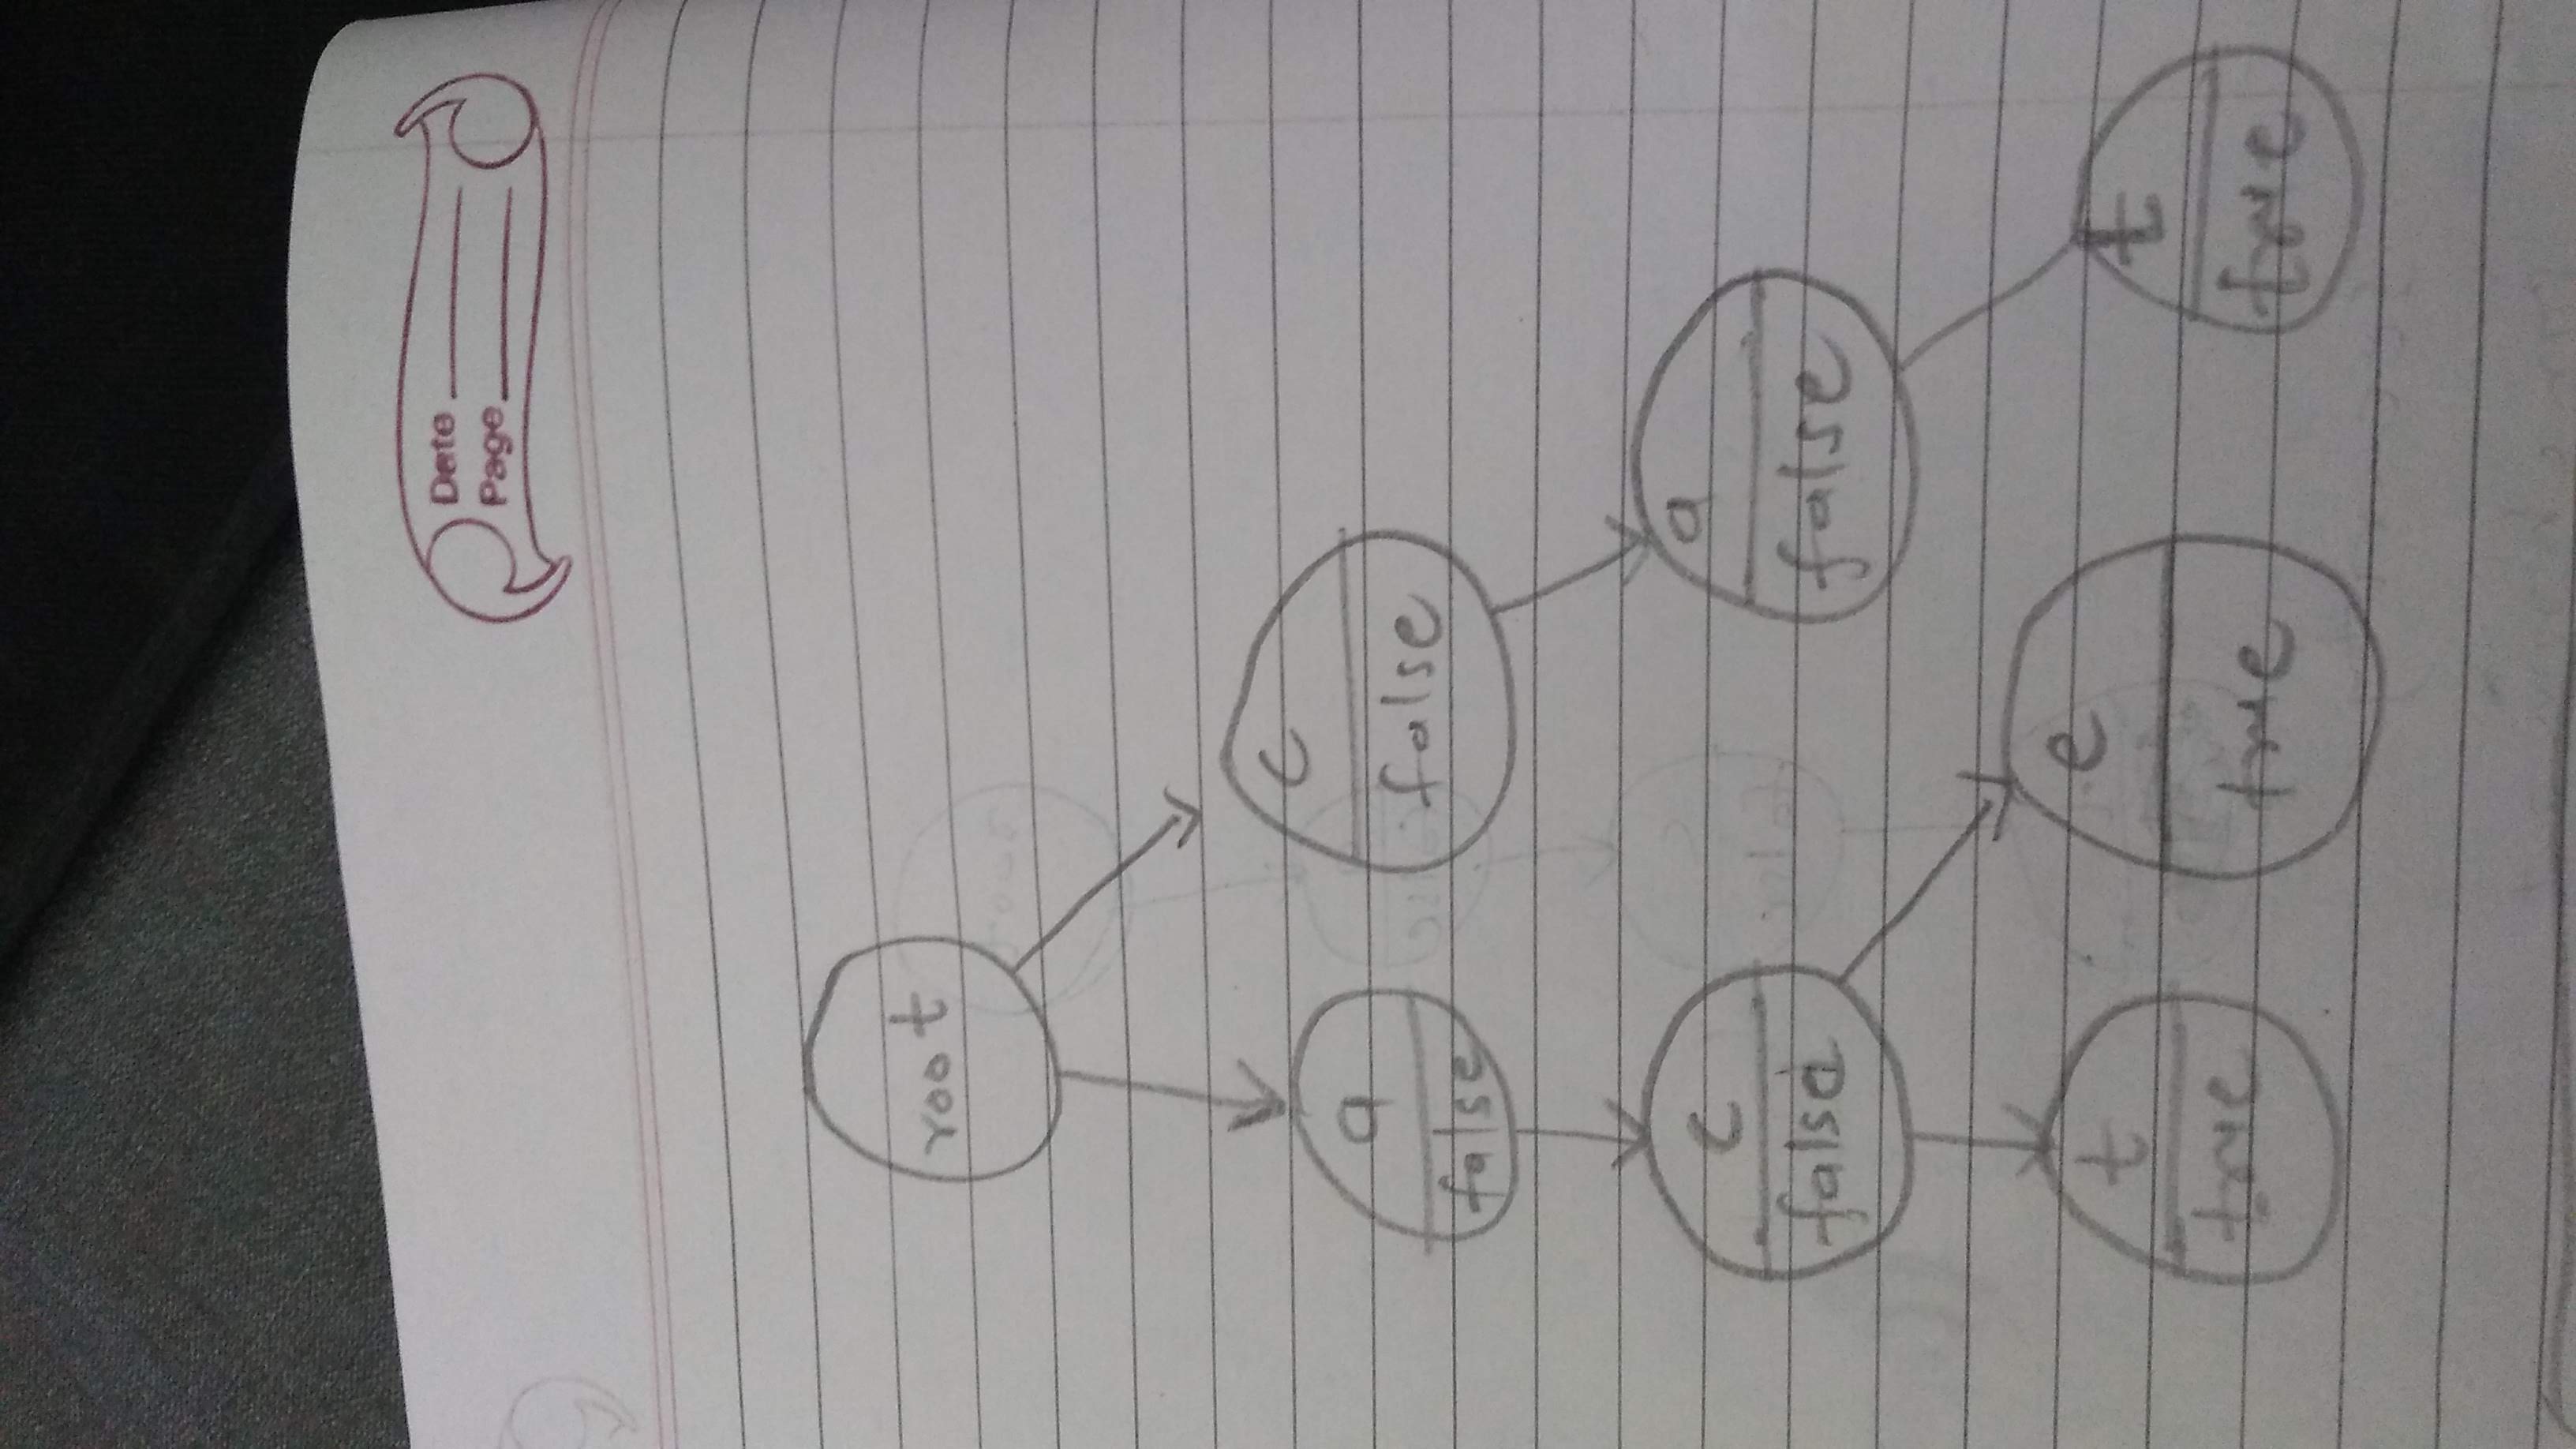 Date
Page
root
a
false
c
false
c
false
a
false
t
true
e
true
t
true